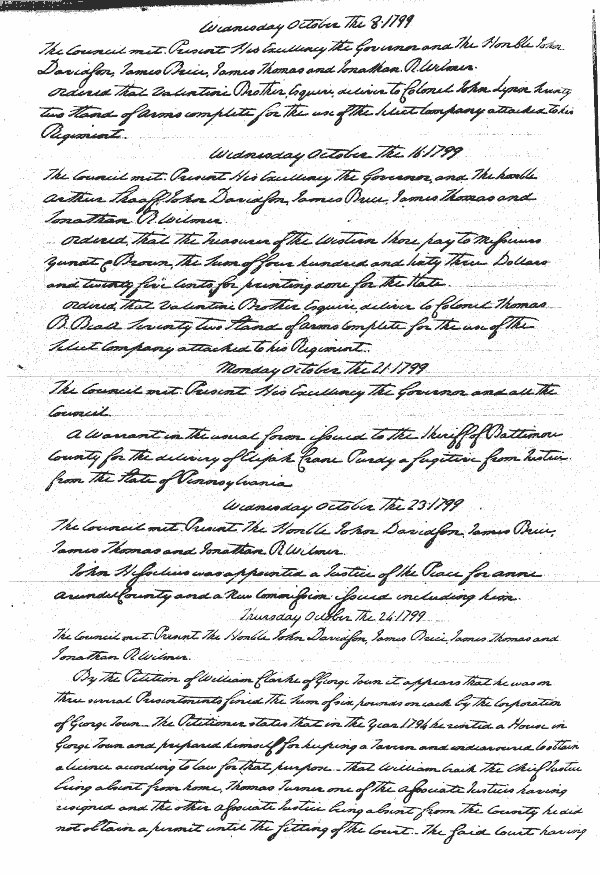 Wednesday October the 8. 1799
The Council met. Present His Excellency the Governor and The Honble John
Davidson, James Brice, James Thomas and Jonathan R. Wilmer.
Ordered that Valentine Brother Esquire, deliver to Colonel John Lynn twenty
two Stand of Arms complete for the use of the Select Company attached to his
Regiment.
Wednesday October the 16. 1799
The Council met. Present His Excellency the Governor, and The honble
Arthur Shaaff, John Davidson, James Brice, James Thomas and
Jonathan R. Wilmer.
Ordered, that the Treasurer of the Western Shore pay to Messieurs
Yundt & Brown, the Sum of four hundred and sixty three Dollars
and twenty five Cents for printing done for the State.
Ordered, that Valentine Brother Esquire, deliver to Colonel Thomas
B. Beall Seventy two Stand of Arms complete for the use of the
Select Company attached to his Regiment.
Monday October the 21. 1799
The Council met. Present His Excellency the Governor and all the
Council.
A Warrant in the usual form issued to the Sheriff of Baltimore
County for the delivery of Elijah Crane Purdy a fugitive from Justice
from the State of Pennsylvania
Wednesday October the 23. 1799
The Council met. Present The Honble John Davidson, James Brice,
James Thomas and Jonathan R. Wilmer.
John Hesselius was appointed a Justice of the Peace for Anne
Arundel County and a New Commission issued including him.
Thursday October the 24. 1799
The Council met. Present The Honble John Davidson, James Brice, James Thomas and
Jonathan R. Wilmer.
By the Petition of William Clarke of George Town it appears that he was on
three several Presentments fined the Sum of six pounds on each by the Corporation
of George Town. The Petitioner states that in the Year 1794 he rented a House in
George Town and prepared himself for keeping a Tavern and endeavoured to obtain
a licence according to law for that purpose - that William Craik the Chief Justice
being absent from home, Thomas Turner one of the Associate Justices having
resigned and the other Associate Justice being absent from the County he did
not obtain a permit until the sitting of the Court. - The said Court having